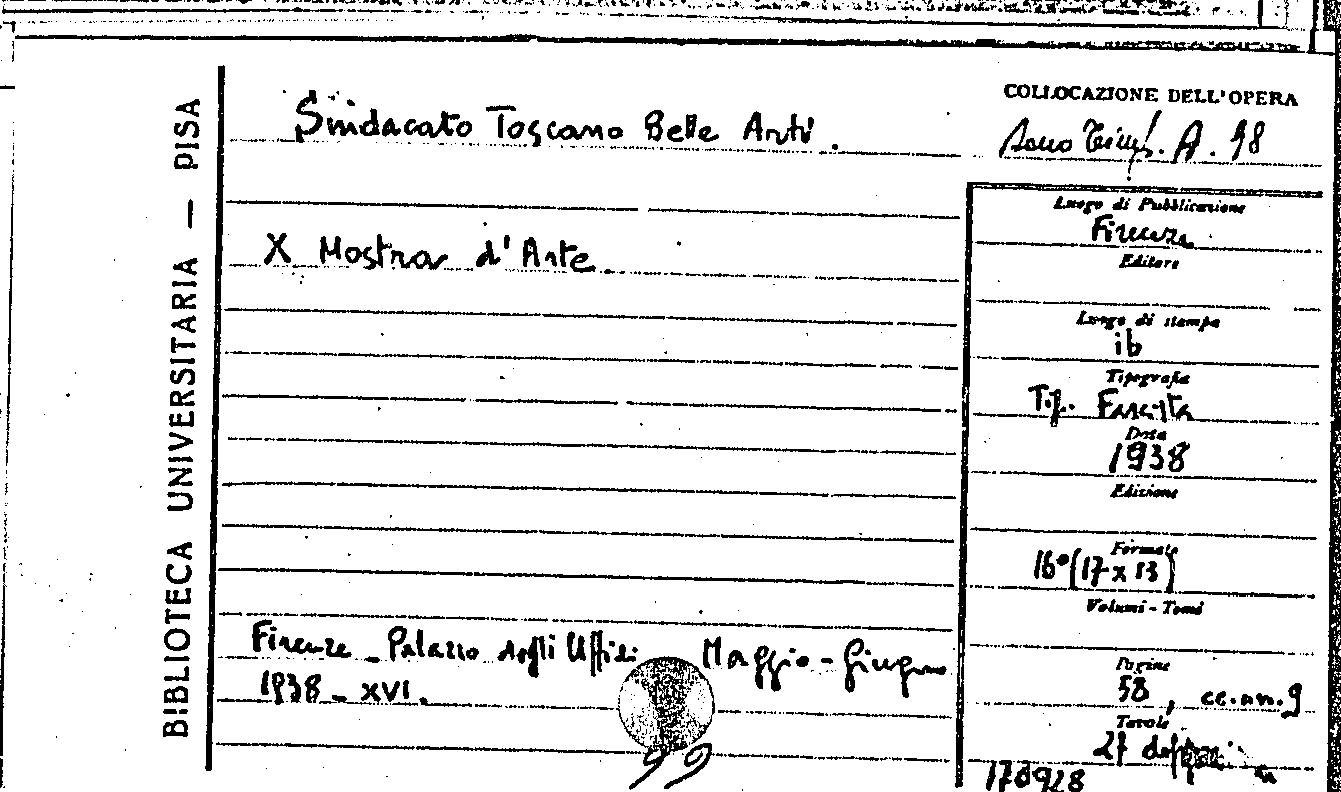 BIBLIOTECA UNIVERSITARIA — PISA
Sindacato Toscano Belle Arti.
X Mostra d'Arte.
Firenze - Palazzo degli Uffizi Maggio - Giugno
1938 - XVI.
99
COLLOCAZIONE DELL'OPERA
A. 98
Luogo di Pubblicazione
Firenze
Editore
Luogo di stampa
ib
Tipografia
Tip. Fascista
Data
1938
Edizione
Formato
16° (17 x 13)
Volumi - Tomi
Pagine
58, cc.nn.9
Tavole
27
170928